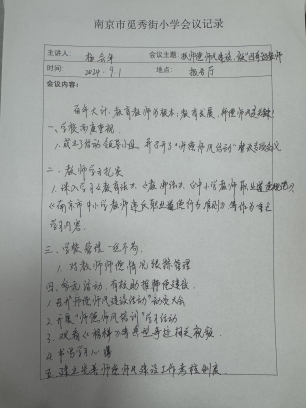 南京市觅秀街小学会议记录
主讲人: 会议主题: 教师师德师风建设
时间: 2024.9.1 地点: 报告厅
会议内容:
百年大计,教育教师为根本;教育发展,师德师风是关键!
一、学校高度重视
1.成立活动领导小组,并召开了"师德师风培训"专题会议
二、教师学习扎实
1.深入学习《教育法》、《教师法》、《中小学教师职业道德规范》、
《南京市中小学教师违反职业道德行为处理》等作为重点
学习内容.
三、学校管理
1.对教师师德情况跟踪管理
四、活动,有效助推师德建设
1.召开"师德师风建设活动"动员大会
2.开展"师德师风培训"学习活动
3.观看《榜样》等典型事迹相关视频
4.书写学习心得
五、建立完善师德师风建设工作考核制度.